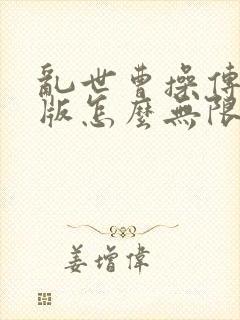 亂世曹操傳
版怎麼無限
姜增偉